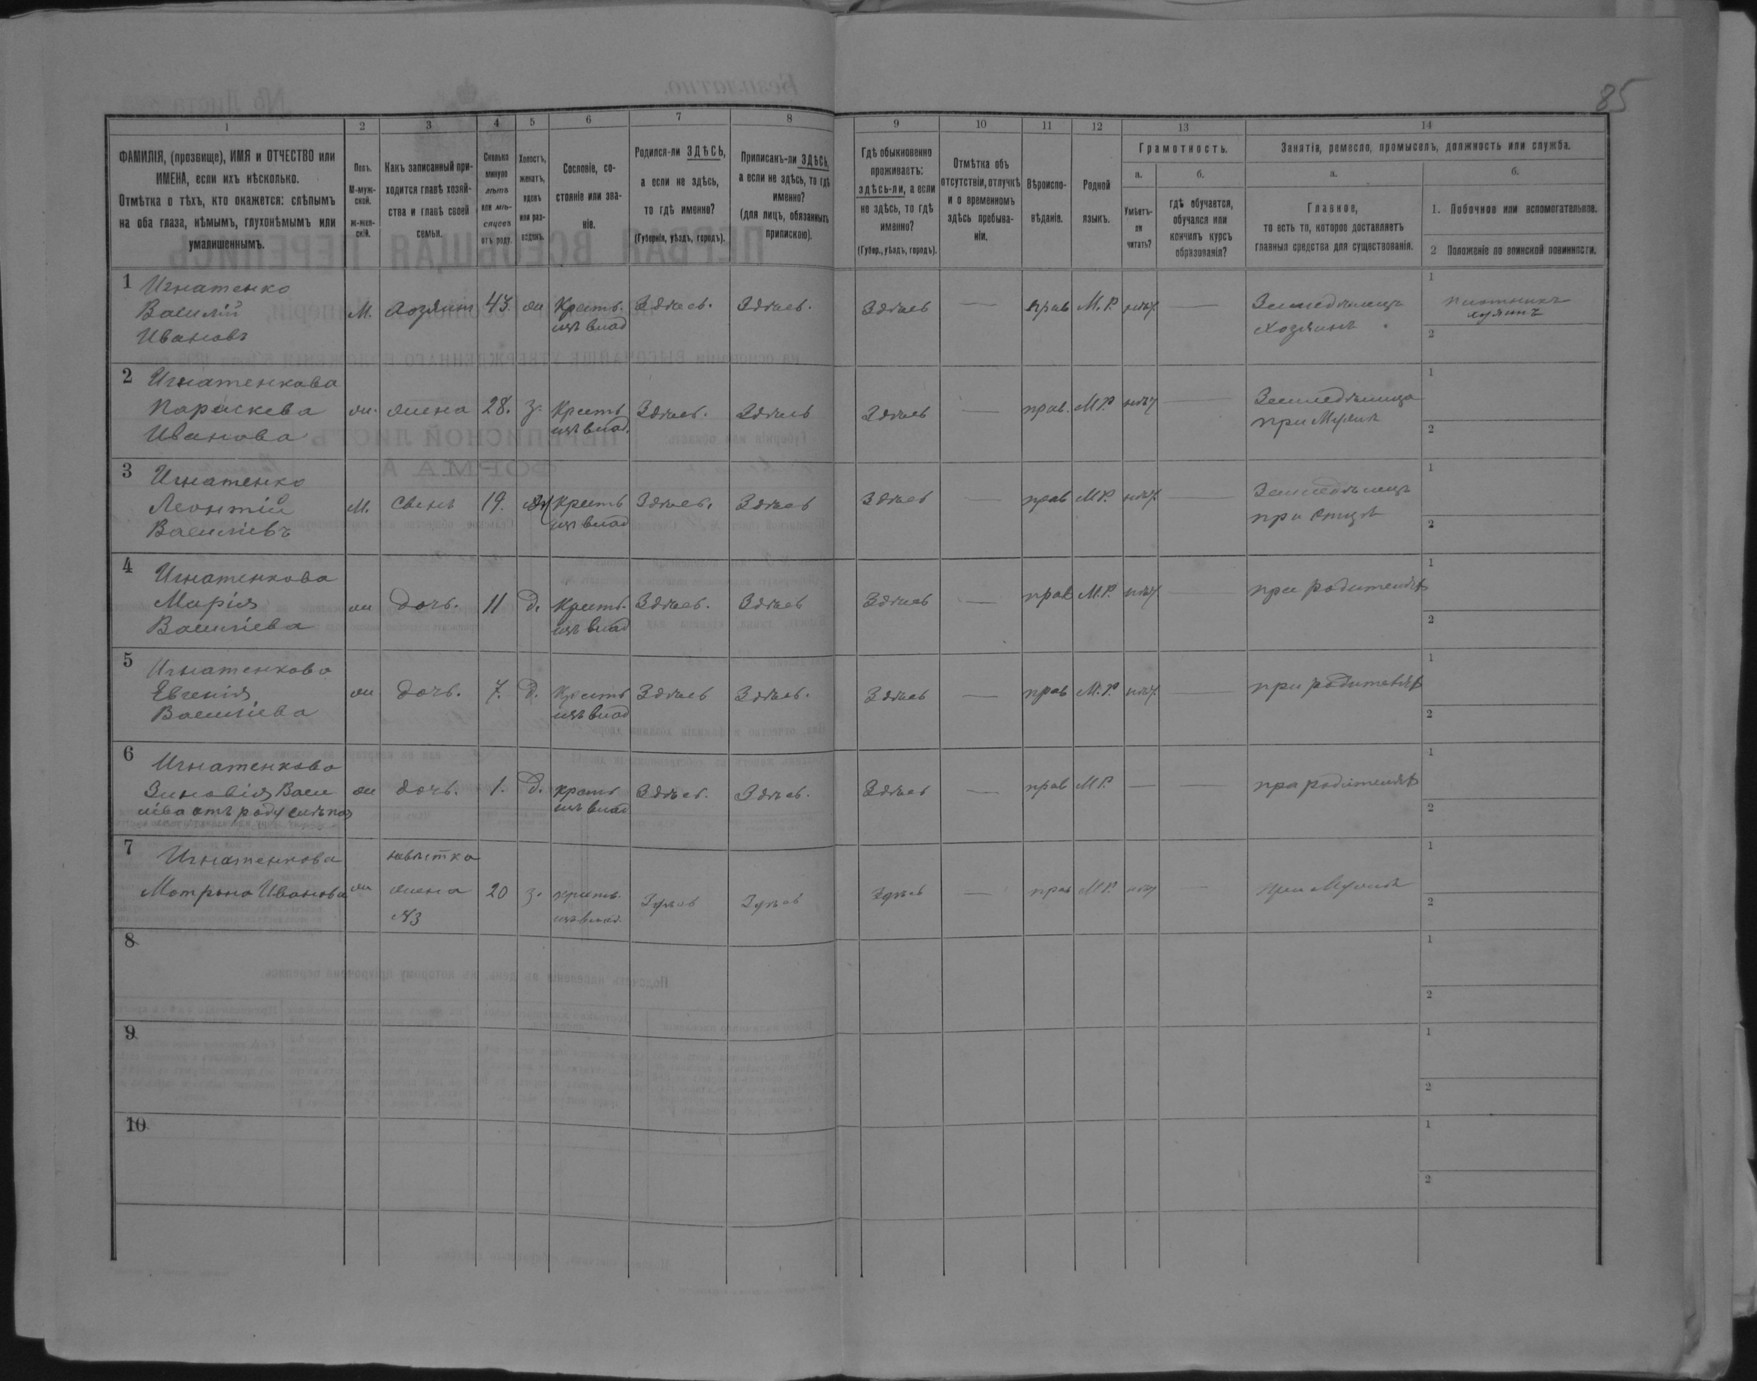 85
1 2 3 4 5 6 7 8 9 10 11 12 13 14
ФАМИЛІЯ, (прозвище), ИМЯ и ОТЧЕСТВО или
ИМЕНА, если ихъ нѣсколько.
Отмѣтка о тѣхъ, кто окажется: слѣпымъ
на оба глаза, нѣмымъ, глухонѣмымъ или
умалишеннымъ.
Полъ.
М-муж-
ской.
ж-жен-
скій.
Какъ записанный при-
ходится главѣ хозяй-
ства и главѣ своей
семьи.
Сколько
минуло
лѣтъ
или мѣ-
сяцевъ
отъ роду.
Холостъ,
женатъ,
вдовъ
или раз-
веденъ.
Сословіе, со-
стояніе или зва-
ніе.
Родился-ли ЗДѢСЬ,
а если не здѣсь,
то гдѣ именно?
(Губернія, уѣздъ, городъ).
Приписанъ-ли ЗДѢСЬ,
а если не здѣсь, то гдѣ
именно?
(для лицъ, обязанныхъ
припискою).
Гдѣ обыкновенно
проживаетъ:
здѣсь-ли, а если
не здѣсь, то гдѣ
именно?
(Губер., уѣздъ, городъ).
Отмѣтка объ
отсутствіи, отлучкѣ
и о временномъ
здѣсь пребыва-
ніи.
Вѣроиспо-
вѣданіе.
Родной
языкъ.
Грамотность.
а.
Умѣетъ-
ли
читать?
б.
гдѣ обучается,
обучался или
кончилъ курсъ
образованія?
Занятія, ремесло, промыселъ, должность или служба.
а.
Главное,
то есть то, которое доставляетъ
главныя средства для существованія.
б.
1. Побочное или вспомогательное.
2 Положеніе по воинской повинности.
1 Игнатенко
Василій
Ивановъ
М. хозяин 43. Крест. Здѣсь. Здѣсь. Здѣсь — прав М.Р. —
из влад
Земледѣлецъ
Хозяинъ
1 плотникъ
2
2 Игнатенкова
Параскева
Иванова
жена 28. з. Крест Здѣсь. Здѣсь Здѣсь — прав. М.Р. —
из влад.
Земледѣлица
при Мужѣ
1
2
3 Игнатенко
Леонтій
Васильевъ
М. Сынъ 19. Крест Здѣсь. Здѣсь Здѣсь — прав М.Р. —
из влад
Земледѣлецъ
при Отцѣ
1
2
4 Игнатенкова
Марія
Василіева
дочь. 11 д. Крест. Здѣсь. Здѣсь Здѣсь — прав М.Р. —
из влад
при родителях
1
2
5 Игнатенкова
Евгенія
Василіева
дочь. 7. д. Крест Здѣсь Здѣсь. Здѣсь — прав М.Р —
из влад
при родителях
1
2
6 Игнатенкова
Зиновія Васи
ліева отъ роду слѣпая
дочь. 1. д. Крест Здѣсь. Здѣсь. Здѣсь — прав М.Р. — —
из влад
при родителях
1
2
7 Игнатенкова
Мотрона Иванова
невѣстка
жена
№3
20 з. крест. Здѣсь Здѣсь Здѣсь — прав М.Р. —
из влад.
при Мужѣ
1
2
8
1
2
9
1
2
10
1
2